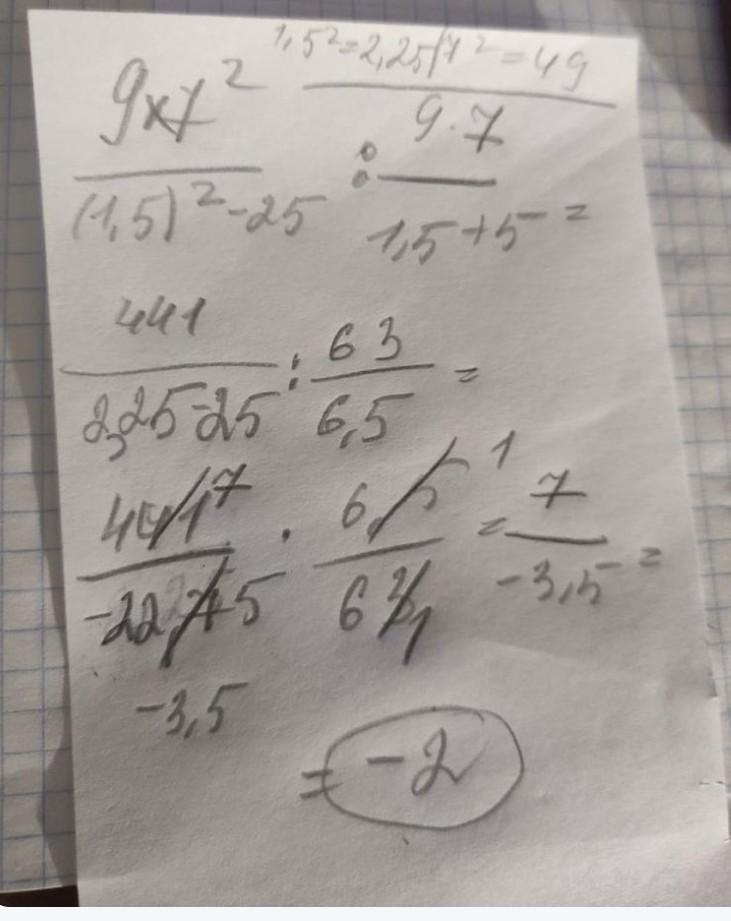 1,5² = 2,25 / 7² = 49
9×7² / (1,5)² - 25 : 9·7 / 1,5 + 5 =
441 / 2,25 - 25 : 63 / 6,5 =
441 7 / -22,75 -3,5 · 6,5 1 / 63 1 = 7 / -3,5 =
= -2